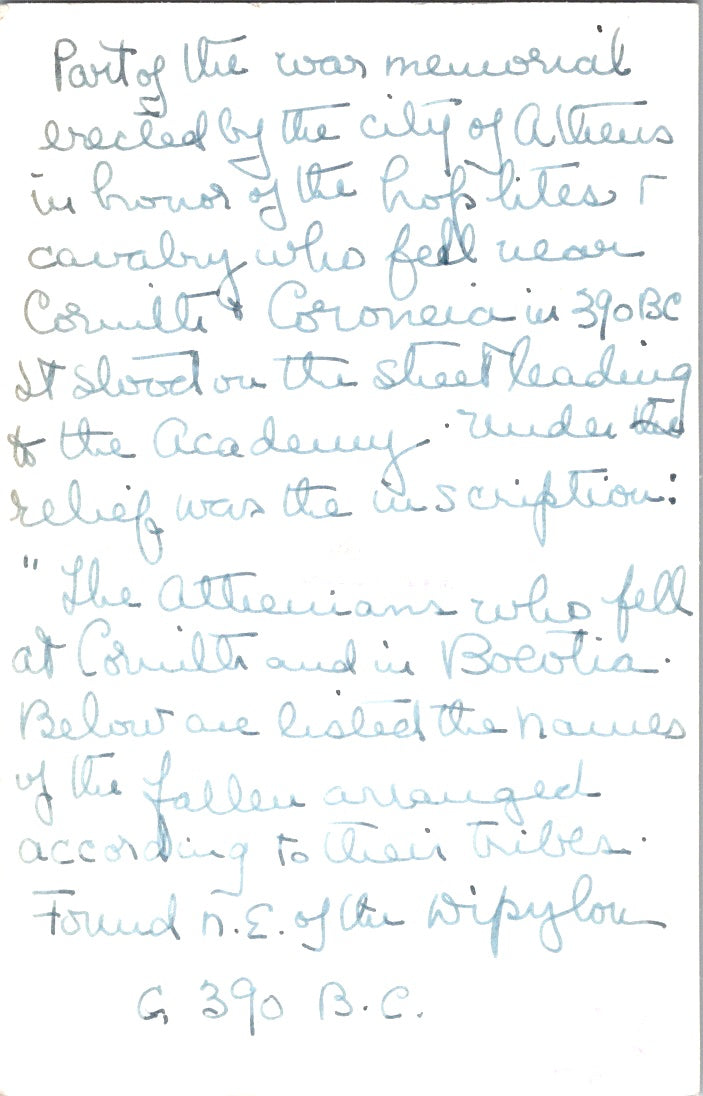 Part of the war memorial
erected by the city of Athens
in honor of the hoplites +
cavalry who fell near
Corinth & Coroneia in 390 BC
It stood on the street leading
to the Academy. Under the
relief was the inscription:
"The Athenians who fell
at Corinth and in Boeotia.
Below are listed the names
of the fallen arranged
according to their tribes.
Found N.E. of the Dipylon
C, 390 B.C.